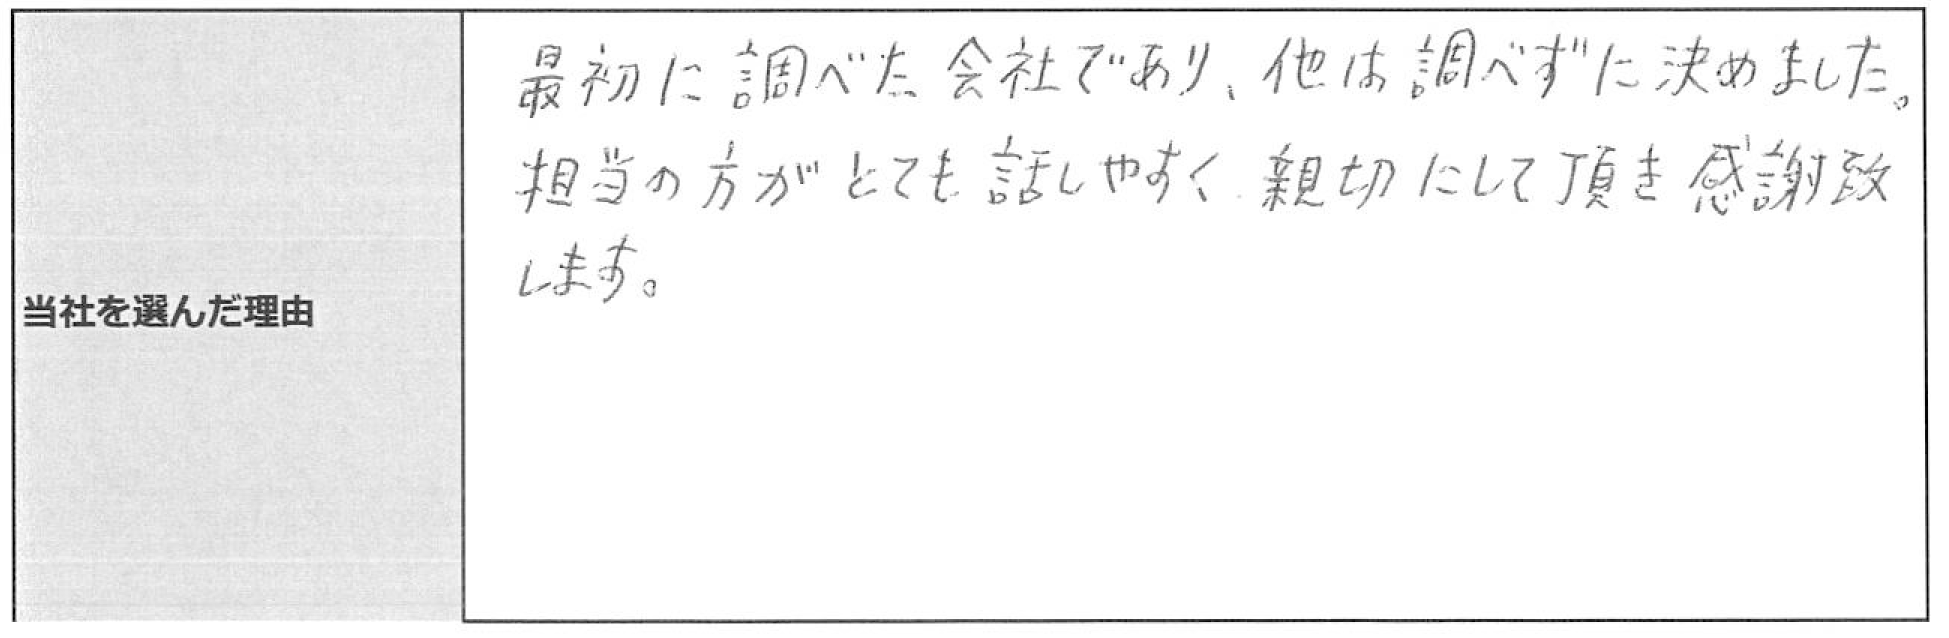 当社を選んだ理由
最初に調べた会社であり、他は調べずに決めました。
担当の方がとても話しやすく親切にして頂き感謝致
します。